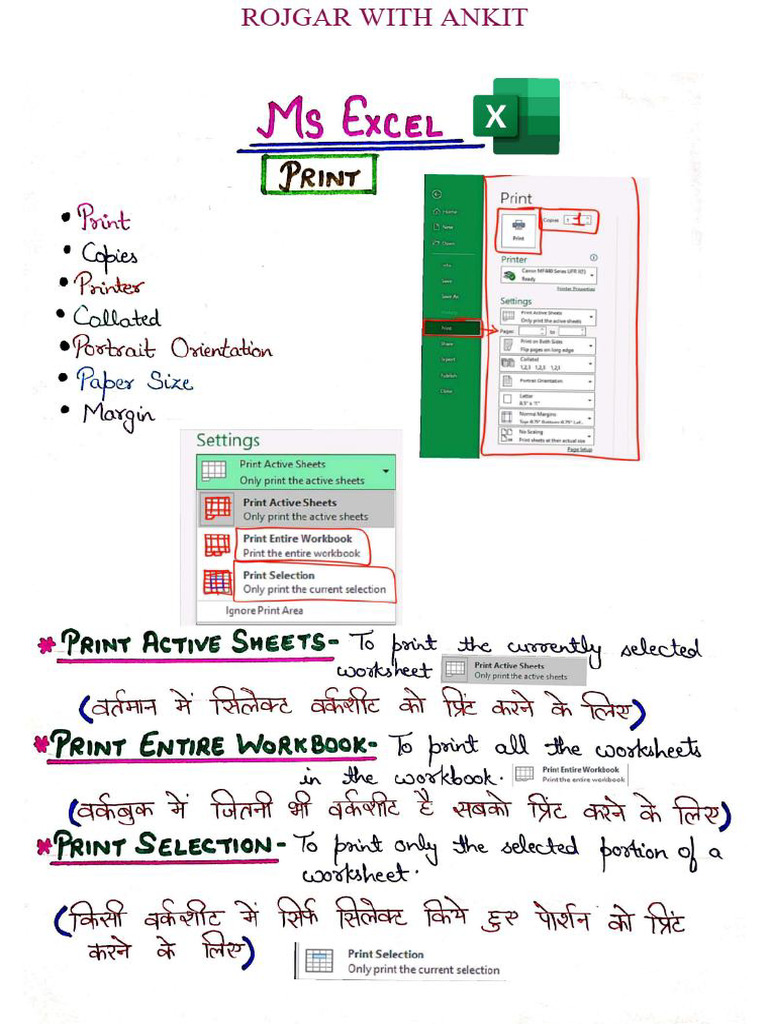 ROJGAR WITH ANKIT
Ms EXCEL
X
PRINT
• Print
• Copies
• Printer
• Collated
• Portrait Orientation
• Paper Size
• Margin
Home
New
Open
Info
Save
Save As
Print
Share
Export
Publish
Close
Print
Print
Copies: 1
Printer
Canon MF440 Series UFR II
Ready
Printer Properties
Settings
Print Active Sheets
Only print the active sheets
Pages: to
Print on Both Sides
Flip pages on long edge
Collated
1,2,3 1,2,3 1,2,3
Portrait Orientation
Letter
8.5" x 11"
Normal Margins
No Scaling
Print sheets at their actual size
Page Setup
Settings
Print Active Sheets
Only print the active sheets
Print Active Sheets
Only print the active sheets
Print Entire Workbook
Print the entire workbook
Print Selection
Only print the current selection
Ignore Print Area
* PRINT ACTIVE SHEETS- To print the currently selected
worksheet
Print Active Sheets
Only print the active sheets
(वर्तमान में सिलैक्ट वर्कशीट को प्रिंट करने के लिए)
* PRINT ENTIRE WORKBOOK- To print all the worksheets
in the workbook.
Print Entire Workbook
Print the entire workbook
(वर्कबुक में जितनी भी वर्कशीट है सबको प्रिंट करने के लिए)
* PRINT SELECTION- To print only the selected portion of a
worksheet.
(किसी वर्कशीट में सिर्फ सिलैक्ट किये हुए पोर्शन को प्रिंट
करने के लिए)
Print Selection
Only print the current selection